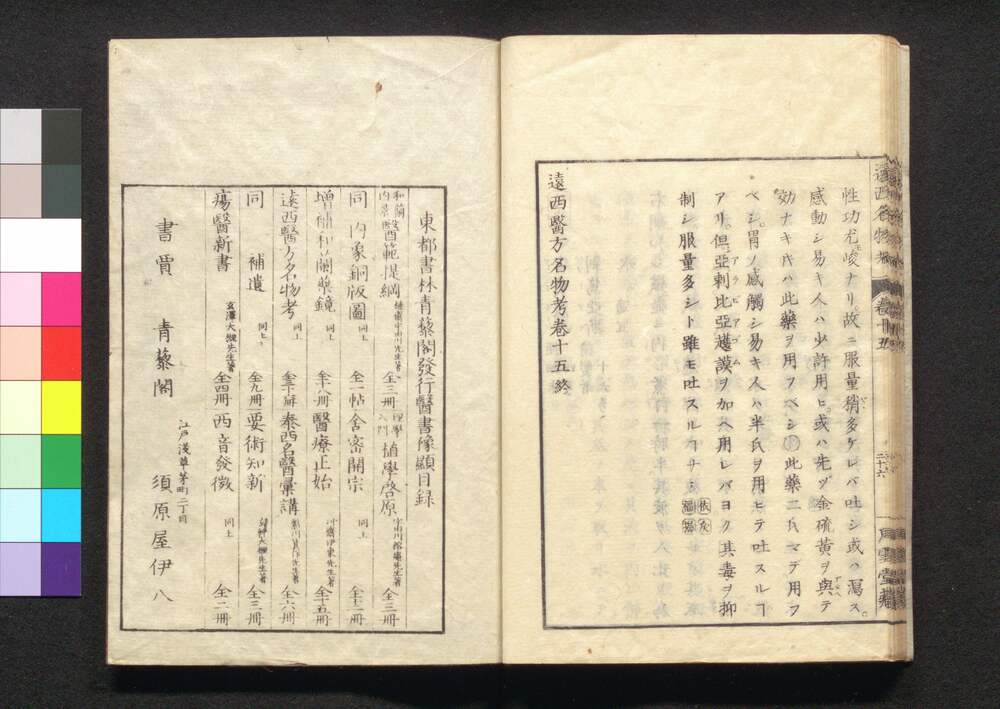 性功尤峻ナリ故ニ服量稍多ケレバ吐シ或ハ瀉ス。
感動シ易キ人ハ少許用ヒ或ハ先ヅ金硫黄ヲ與テ
効ナキ氏ハ此藥ヲ用フベシ 此藥二氏マデ用フ
ベシ。胃ノ感觸シ易キ人ハ半氏ヲ用ヒテ吐スルヿ
アリ。但亞剌比亞護謨ヲ加ヘ用レバヨク其毒ヲ抑
制シ服量多シト雖モ吐スルヿナシ
遠西醫方名物考卷十五終
遠西名物考
卷十五
二十六
東都書林青藜閣發行醫書像顯目録
和蘭內景醫範提綱 榛齋宇田川先生著 全三冊
理學入門植學啓原 宇田川榕菴先生著 全三冊
同 內象銅版圖 同上 全一帖
舍密開宗 同上
増補和蘭藥鏡 同上 全十八冊
醫療正始 伊東先生著 全十五冊
遠西醫方名物考 同上
泰西名醫彙講 先生著 全六冊
同 補遺 同上 全九冊
要術知新 大槻先生著 全三冊
瘍醫新書 玄澤大槻先生著 全四冊
西音發微 同上 全二冊
江戸淺草茅町二丁目
書賈 青藜閣 須原屋伊八